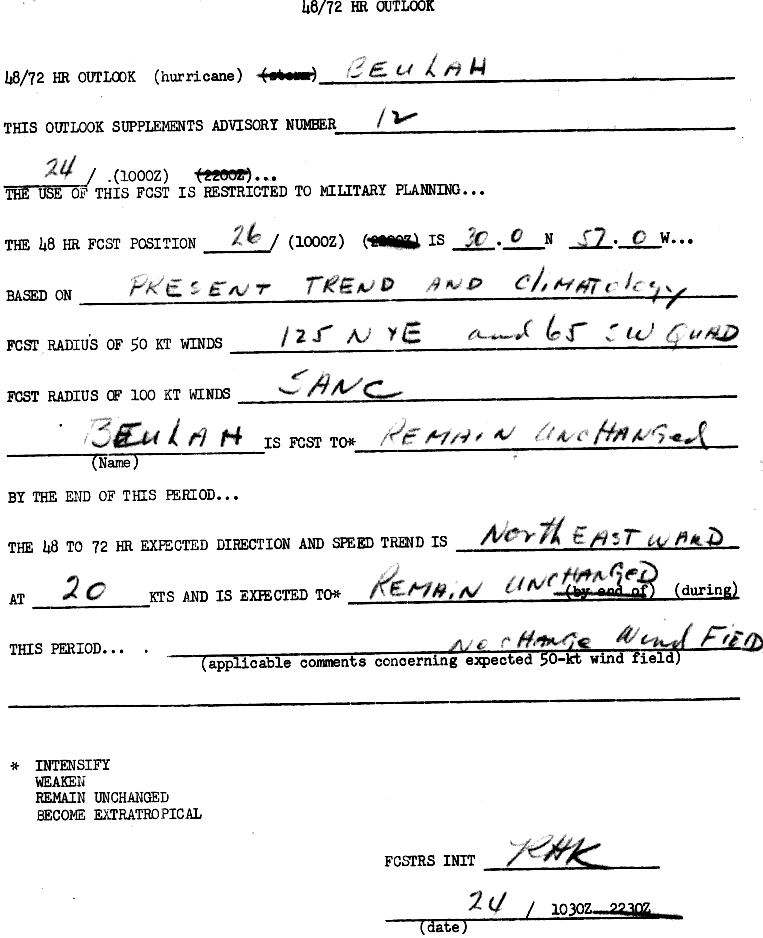 48/72 HR OUTLOOK
48/72 HR OUTLOOK (hurricane) (storm) BEULAH
THIS OUTLOOK SUPPLEMENTS ADVISORY NUMBER 12
24 / .(1000Z) (2200Z)...
THE USE OF THIS FCST IS RESTRICTED TO MILITARY PLANNING...
THE 48 HR FCST POSITION 26 / (1000Z) (2200Z) IS 30.0 N 57.0 W...
BASED ON PRESENT TREND AND CliMATology
FCST RADIUS OF 50 KT WINDS 125 N YE and 65 SW QUAD
FCST RADIUS OF 100 KT WINDS SANC
BEULAH IS FCST TO* REMAIN UNCHANGed
(Name)
BY THE END OF THIS PERIOD...
THE 48 TO 72 HR EXPECTED DIRECTION AND SPEED TREND IS NorthEASTWARD
AT 20 KTS AND IS EXPECTED TO* REMAIN UNCHANGED (by end of) (during)
THIS PERIOD... . No CHANGE Wind FIELD
(applicable comments concerning expected 50-kt wind field)
* INTENSIFY
WEAKEN
REMAIN UNCHANGED
BECOME EXTRATROPICAL
FCSTRS INIT RHK
24 / 1030Z 2230Z
(date)